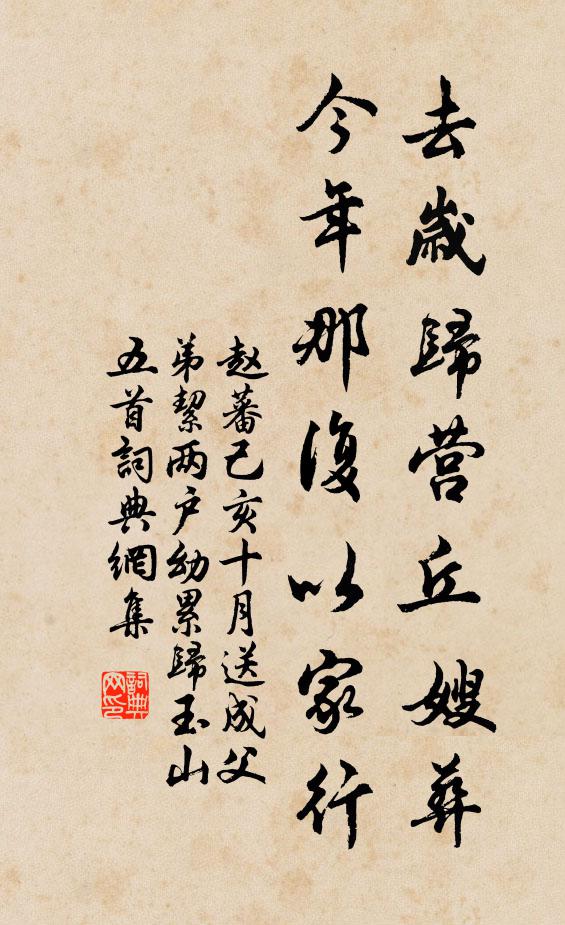 去歲歸营丘嫂葬
今年那復以家行
赵蕃己亥十月送成父
弟絜两户幼累歸玉山
五首詞典網集
詞典
网印